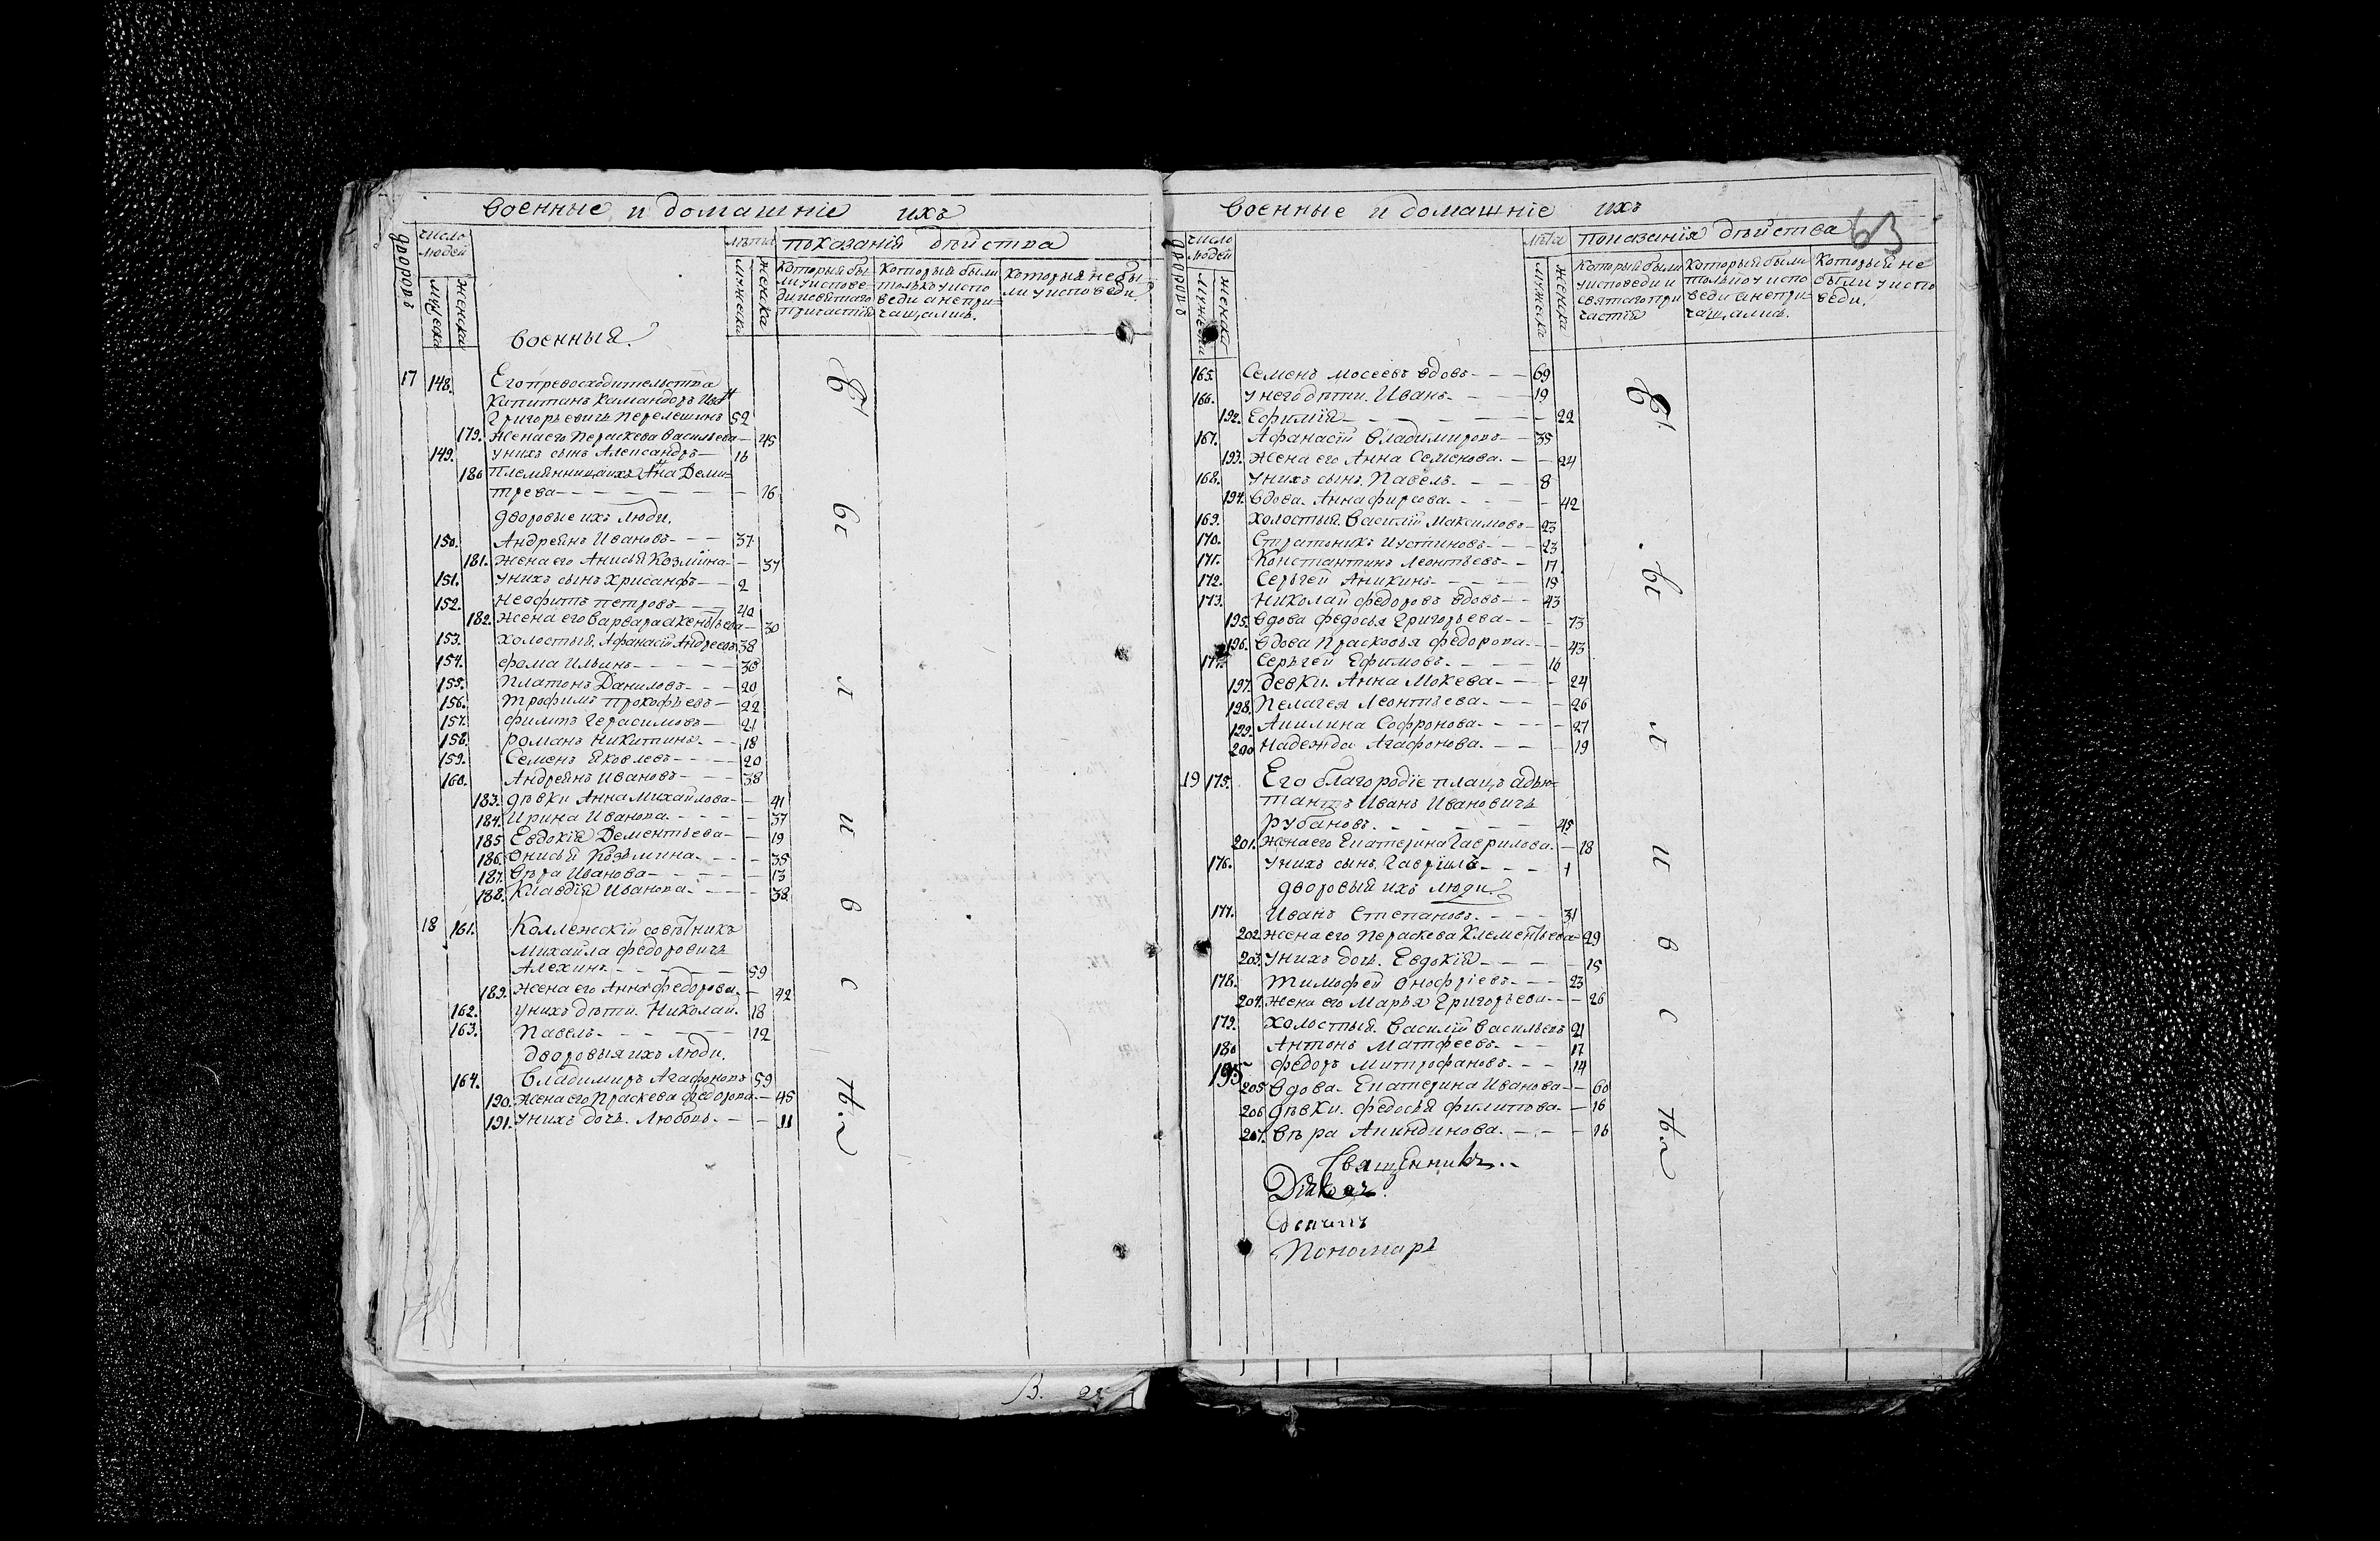 Военные и домашніе ихъ
дворовъ
число людей
мужеска
женска
Военныя.
лѣта
мужеска
женска
показанія дѣйства
Которыя были у исповеди и святаго причастія
Которыя были только у исповеди а непричащались.
Которыя не были у исповеди,
17 148. Его превосходительства
Капитанъ Камандоръ
Григорьевичъ Перелешинъ 52
179. Жена его Параскева Васильева — 45
149. У нихъ сынъ Александръ — 16
180 Племянница ихъ Анна Деми=
трева — — — 16
дворовые ихъ люди.
150. Андреянъ Ивановъ — — 37
181. Жена его Анисья Козмiина — 37
151. У нихъ сынъ Хрисанфъ — — 2
152. Неофитъ Петровъ — — 40
182. Жена его Варвара Акентьева — 30
153. холостый. Афанасій Андреевъ 38
154. Фома Ильинъ — — — 38
155. Платонъ Даниловъ — — 20
156. Трофимъ Прокофьевъ — 22
157. Филитъ Герасимовъ — 21
158. Романъ Никитинъ. — — 18
159. Семенъ Яковлевъ — — — 20
160. Андреянъ Ивановъ — — — 38
183. дѣвки Анна Михайлова — — 41
184. Ирина Иванова. — — — 37
185 Евдокія Дементьева — — 19
186. Онисья Козьмина. — — — 35
187. Вѣра Иванова — — — 13
188. Клавдія Иванова. — — — 38.
18 161. Коллежскій совѣтникъ
Михайла Федоровичъ
Алехинъ. — — — — 59
189. Жена его Анна Федорова. — 42
162. У нихъ дѣти. Николай. 18
163. Павелъ. — — — — 12
дворовыя ихъ люди.
164. Владимиръ Агафоновъ 59
190. Жена его Праскева Федорова. — 45
191. У нихъ дочь. Любовь. — — 11
В
Бы
л
и
в
с
ѣ.
В.
Военные и домашніе ихъ
63
дворовъ
число людей
мужеска
женска
лѣта
мужеска
женска
показанія дѣйства
Которыя были у исповеди и святаго причастія
Которыя были только у исповеди а непричащались.
Которыя не были у исповеди,
165. Семенъ Мосеевъ вдовъ — — — 69
166. У него дѣти. Иванъ. — — — 19
192. Ефимія — — — — 22
167. Афанасій Владимировъ — — 35
193. Жена его Анна Семенова. — — 24
168. У нихъ сынъ. Павелъ. — — — 8
194. Вдова. Анна Фирсова. — — — 42
169. Холостыя. Василій Максимовъ — 23
170. Стратоникъ Иустиновъ. — — — 23
171. Константинъ Леонтьевъ. — — 17
172. Сергей Аникинъ — — — — 19
173. Николай Федоровъ вдовъ — — 43
195. Вдова Федосья Григорьева — — 73
196. Вдова Прасковья Федорова. — — 43
174. Сергей Ефимовъ. — — — 16
197. Девки. Анна Мокева — — — 24
198. Пелагея Леонтьева. — — — 26
199. Акилина Софронова. — — — 27
200 Надежда Агафонова. — — — 19
19 175. Его благородіе плацъ адью=
тантъ Иванъ Ивановичъ
Рубановъ. — — — — 45
201. Жена его Екатерина Гаврилова. — 18
176. У нихъ сынъ. Гавріилъ — — — 1
дворовыя ихъ люди.
177. Иванъ Степановъ. — — — 31
202. Жена его Параскева Клементьева — 29
203. У нихъ дочь. Евдокія — — — 15
178. Тимофей Онофріевъ. — — — 23
204. Жена его Марья Григорьева — — 26
179. Холостыя. Василій Васильевъ 21
180 Антонъ Матфеевъ. — — — 17
195 Федоръ Митрофановъ. — — 14
205 Вдова. Екатерина Иванова — — 60
206 дѣвки. Федосья Филипова. — 16
207. Вѣра Акиндинова. — — — 16
В
Бы
л
и
в
с
ѣ.
Священникъ..
Діяконъ.
Дьячекъ
Пономарь